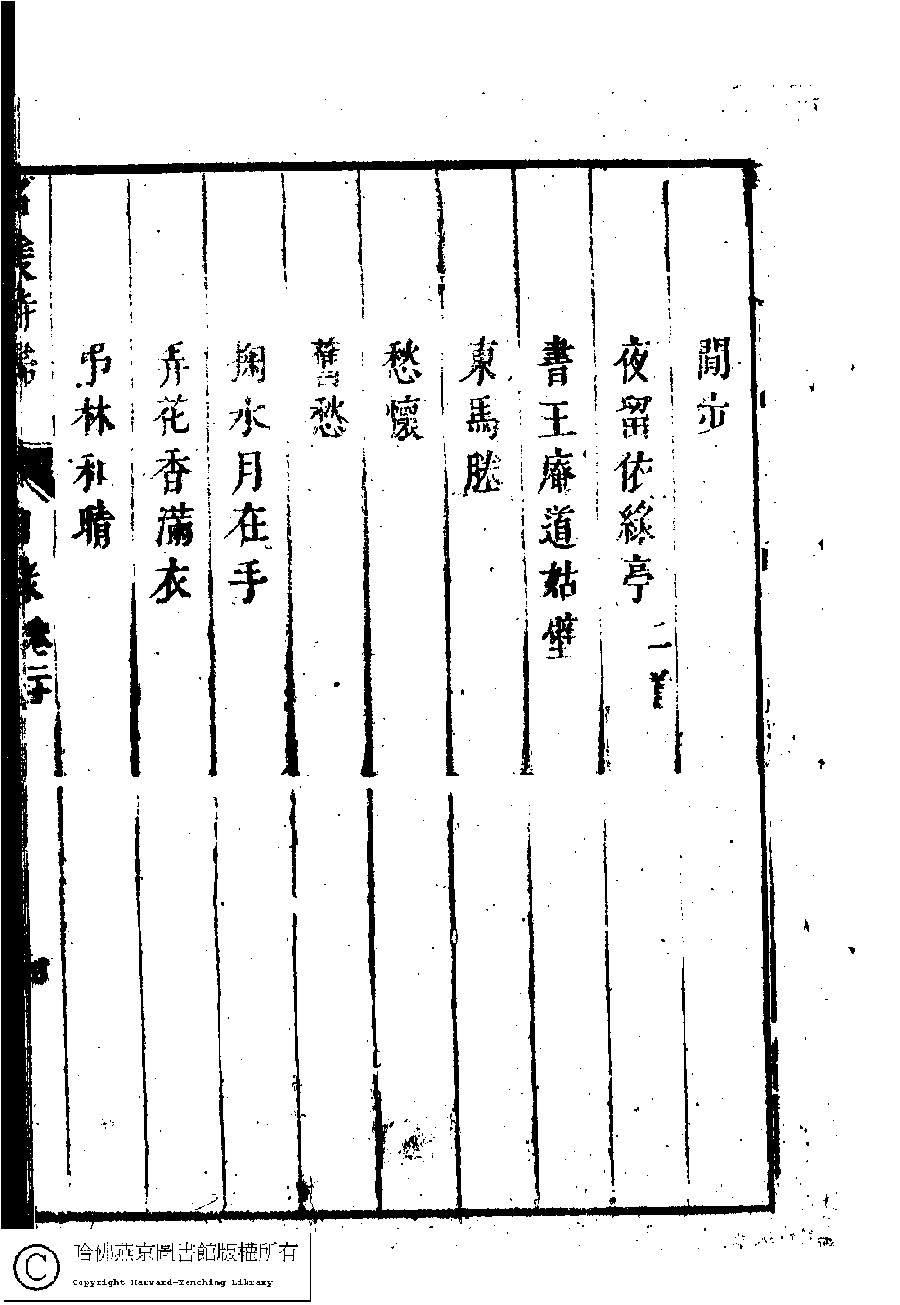 閒步
夜留依綠亭 二首
書王庵道姑壁
東馬塍
愁懷
舊愁
掬水月在手
弄花香滿衣
弔林和靖
目錄 卷二十
哈佛燕京圖書館版權所有
Copyright Harvard-Yenching Library